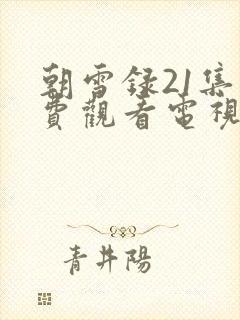 朝雪録21集
費觀看電視
青井陽